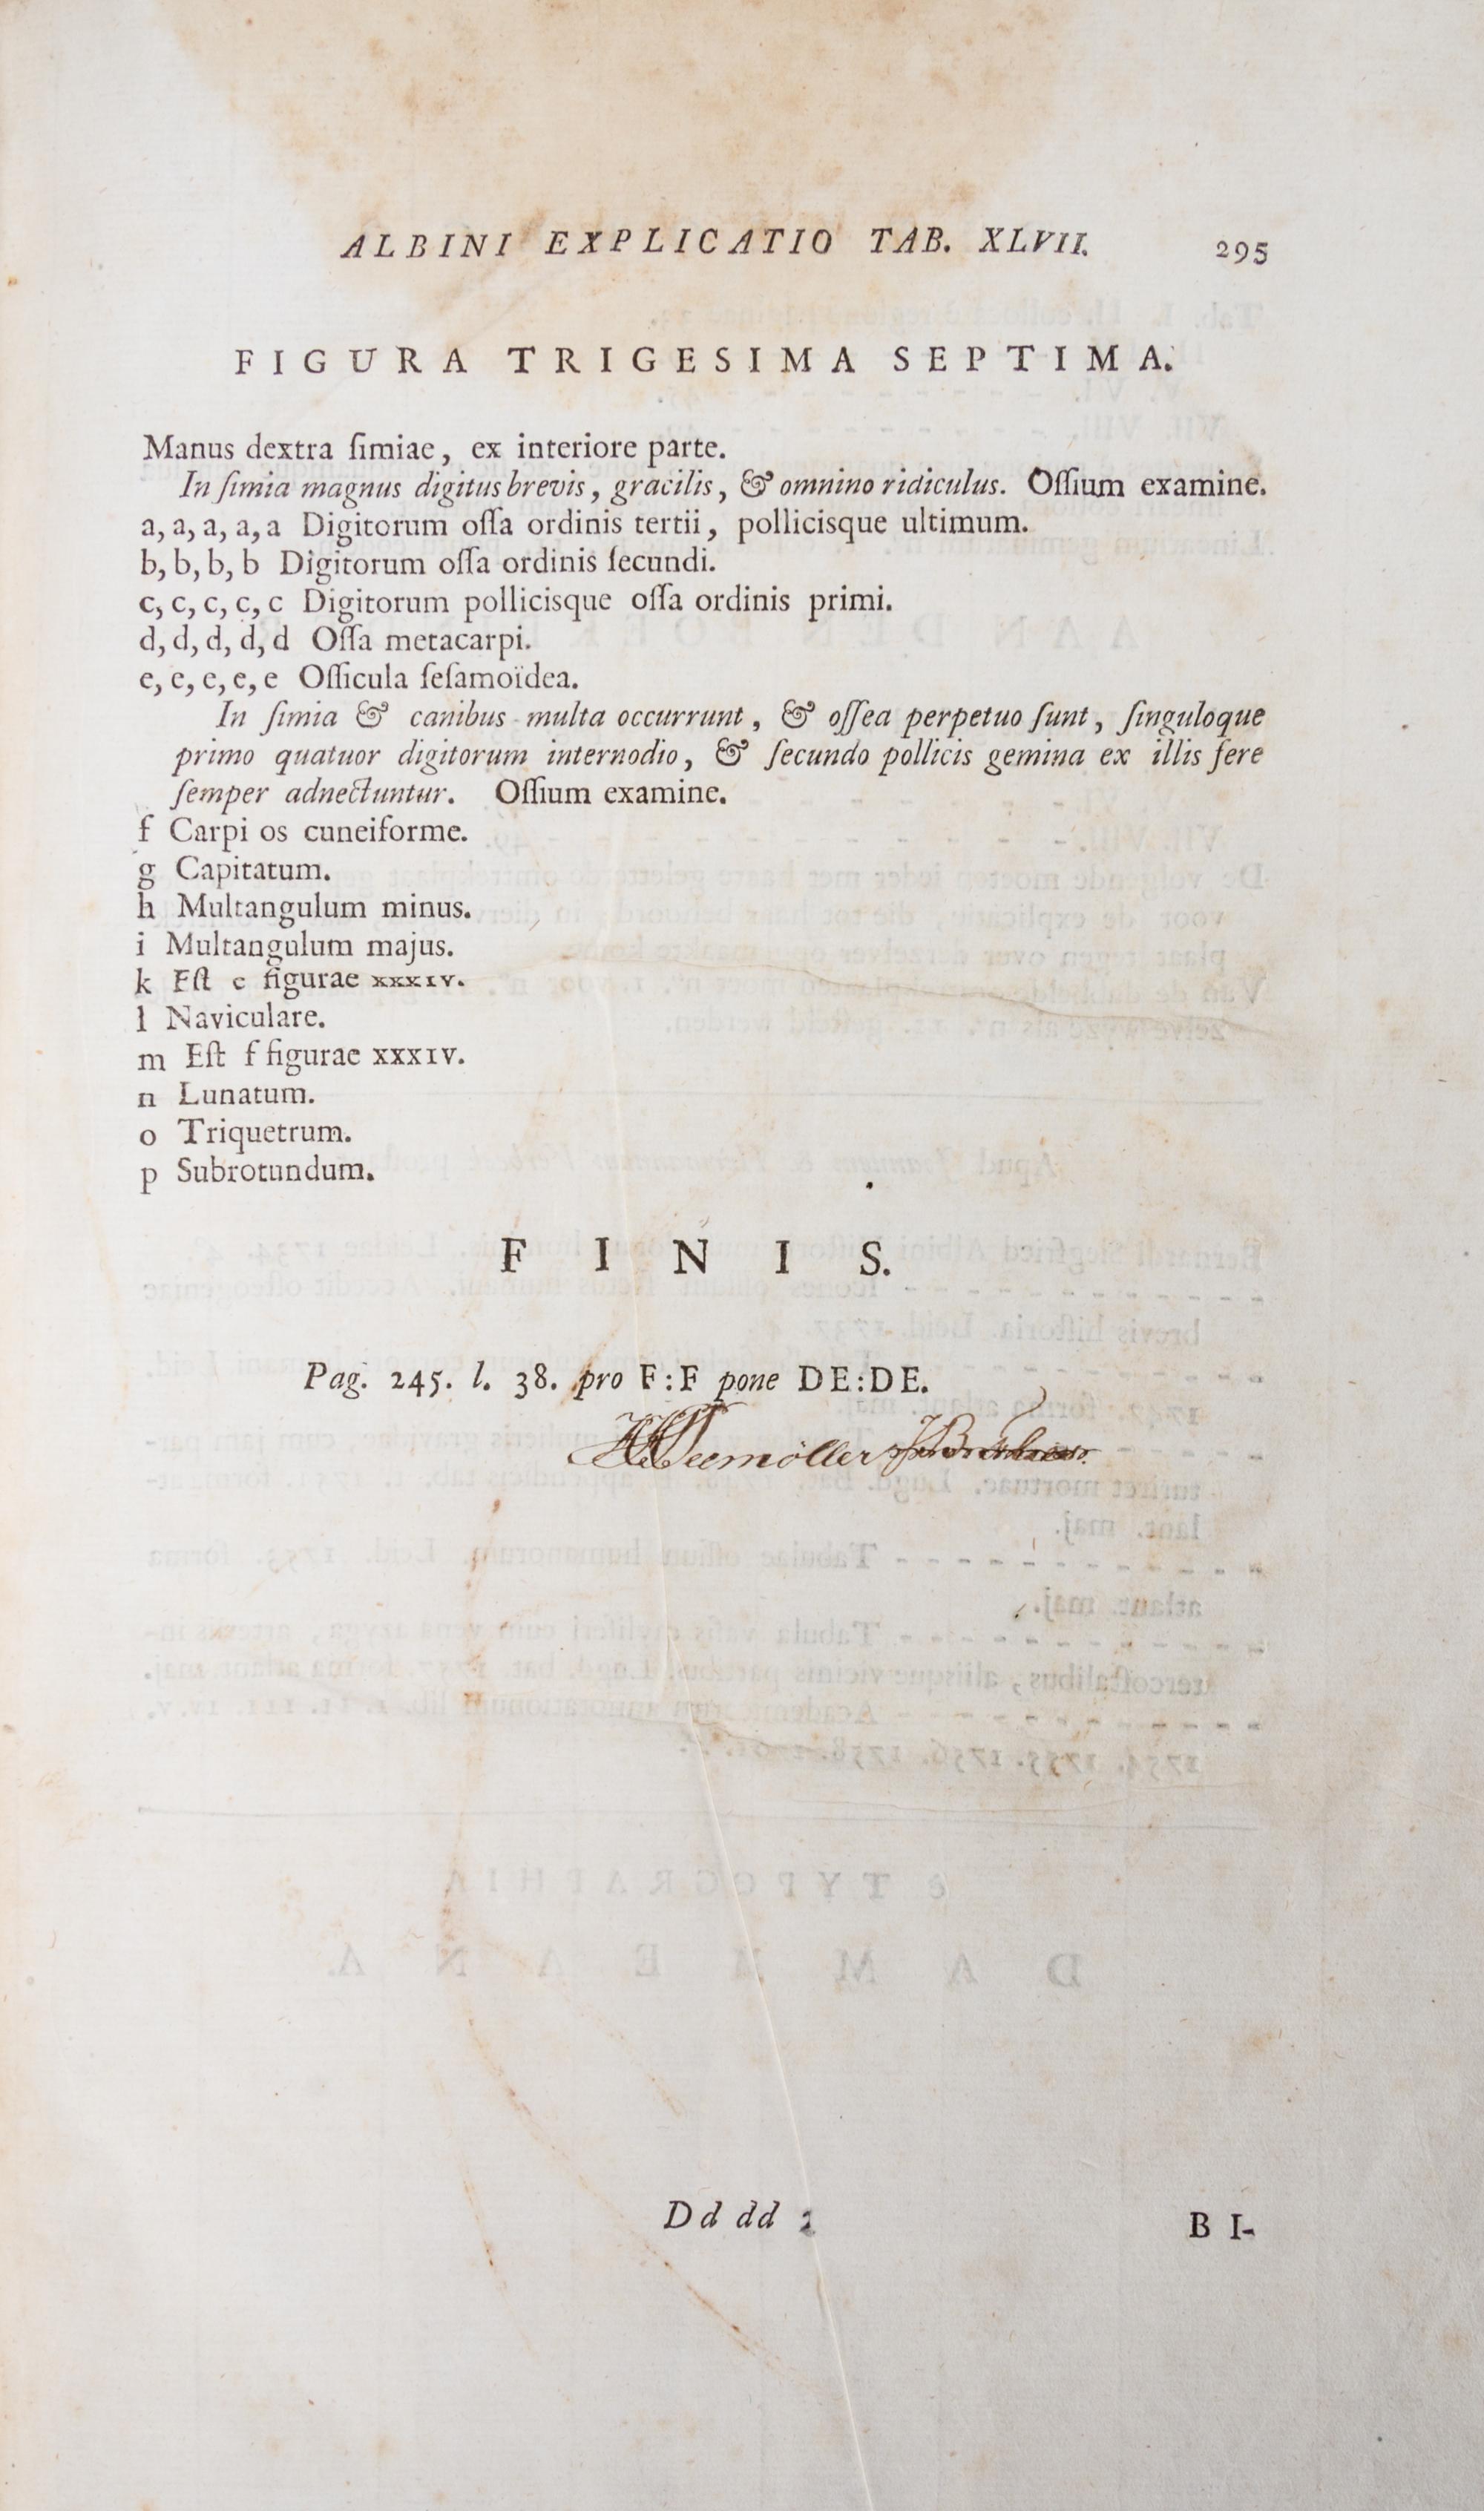 ALBINI EXPLICATIO TAB. XLVII. 295
FIGURA TRIGESIMA SEPTIMA.
Manus dextra ſimiae, ex interiore parte.
In ſimia magnus digitus brevis, gracilis, & omnino ridiculus. Oſſium examine.
a, a, a, a, a Digitorum oſſa ordinis tertii, pollicisque ultimum.
b, b, b, b Digitorum oſſa ordinis ſecundi.
c, c, c, c, c Digitorum pollicisque oſſa ordinis primi.
d, d, d, d, d Oſſa metacarpi.
e, e, e, e, e Oſſicula ſeſamoïdea.
In ſimia & canibus multa occurrunt, & oſſea perpetuo ſunt, ſinguloque
primo quatuor digitorum internodio, & ſecundo pollicis gemina ex illis fere
ſemper adnectuntur. Oſſium examine.
f Carpi os cuneiforme.
g Capitatum.
h Multangulum minus.
i Multangulum majus.
k Eſt e figurae XXXIV.
l Naviculare.
m Eſt f figurae XXXIV.
n Lunatum.
o Triquetrum.
p Subrotundum.
FINIS.
Pag. 245. l. 38. pro F:F pone DE:DE.
Dd dd 2 BI-